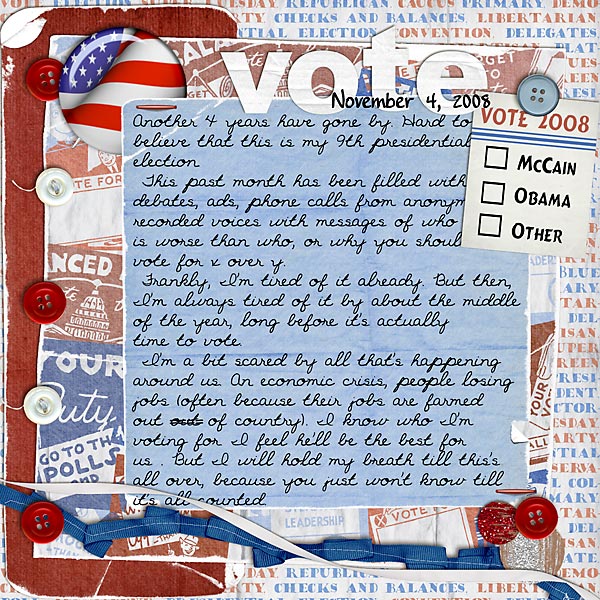 DAY, REPUBLICAN, CAUCUS, PRIMARY, DEMOCRA
TY, CHECKS AND BALANCES, LIBERTARIAN
ELECTION, CONVENTION, DELEGATES
vote
November 4, 2008
Another 4 years have gone by. Hard to
believe that this is my 9th presidential
election
This past month has been filled with
debates, ads, phone calls from
recorded voices with messages of who
is worse than who, or why you
vote for x over y.
Frankly, I'm tired of it already. But then,
I'm always tired of it by about the middle
of the year, long before it's actually
time to vote.
I'm a bit scared by all that's happening
around us. An economic crisis, people losing
jobs (often because their jobs are farmed
out out of country). I know who I'm
voting for I feel he'll be the best for
us . But I will hold my breath till this's
all over, because you just won't know till
it's all counted.
VOTE 2008
McCain
Obama
Other
VOTE FOR
YOUR
Duty
GO TO THE
POLLS
LEADERSHIP
DAY, REPUBLICAN, CAUCUS, PRIMARY
TY, CHECKS AND BALANCES, LIBERTARIAN